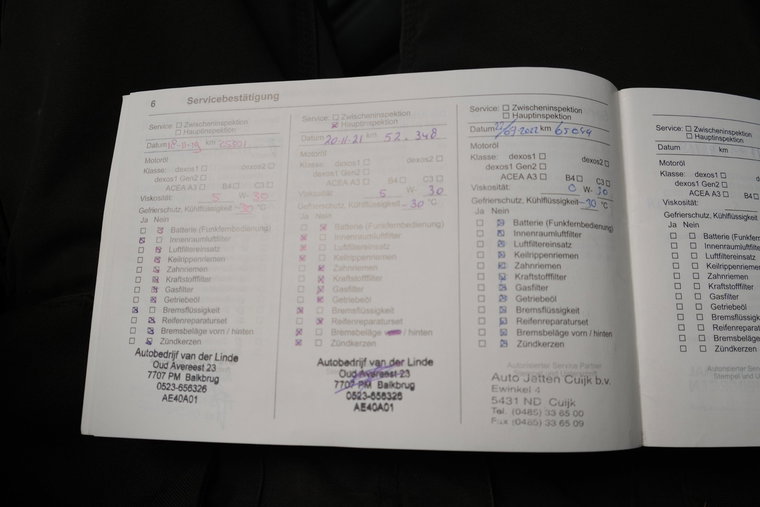 6 Servicebestätigung
Service: ☐ Zwischeninspektion
☐ Hauptinspektion
Datum 18-11-19 km
Motoröl
Klasse: dexos1 ☐ dexos2 ☐
dexos1 Gen2 ☐
ACEA A3 ☐ B4 ☐ C3 ☐
Viskosität: 5 W- 30
Gefrierschutz, Kühlflüssigkeit -30 °C
Ja Nein
Batterie (Funkfernbedienung)
Innenraumluftfilter
Luftfiltereinsatz
Keilrippenriemen
Zahnriemen
Kraftstofffilter
Gasfilter
Getriebeöl
Bremsflüssigkeit
Reifenreparaturset
Bremsbeläge vorn / hinten
Zündkerzen
Autobedrijf van der Linde
Oud Avereest 23
7707 PM Balkbrug
0523-656326
AE40A01
Service: ☐ Zwischeninspektion
☒ Hauptinspektion
Datum 20-11-21 km 52.348
Motoröl
Klasse: dexos1 ☐ dexos2 ☐
dexos1 Gen2 ☐
ACEA A3 ☐ B4 ☐ C3 ☐
Viskosität: 5 W- 30
Gefrierschutz, Kühlflüssigkeit -30 °C
Ja Nein
Batterie (Funkfernbedienung)
Innenraumluftfilter
Luftfiltereinsatz
Keilrippenriemen
Zahnriemen
Kraftstofffilter
Gasfilter
Getriebeöl
Bremsflüssigkeit
Reifenreparaturset
Bremsbeläge / hinten
Zündkerzen
Autobedrijf van der Linde
Oud Avereest 23
7707 PM Balkbrug
0523-656326
AE40A01
Service: ☐ Zwischeninspektion
☐ Hauptinspektion
Datum km
Motoröl
Klasse: dexos1 ☐ dexos2 ☐
dexos1 Gen2 ☐
ACEA A3 ☐ B4 ☐ C3 ☐
Viskosität: 0 W- 30
Gefrierschutz, Kühlflüssigkeit -30 °C
Ja Nein
Batterie (Funkfernbedienung)
Innenraumluftfilter
Luftfiltereinsatz
Keilrippenriemen
Zahnriemen
Kraftstofffilter
Gasfilter
Getriebeöl
Bremsflüssigkeit
Reifenreparaturset
Bremsbeläge vorn / hinten
Zündkerzen
Autorisierter Service Partner
Auto Jatten Cuijk b.v.
Ewinkel 4
5431 ND Cuijk
Tel. (0485) 33 65 00
Fax (0485) 33 65 09
Service: ☐ Zwischeninspektion
☐ Hauptinspektion
Datum km
Motoröl
Klasse: dexos1 ☐
dexos1 Gen2 ☐
ACEA A3 ☐ B4 ☐
Viskosität: W-
Gefrierschutz, Kühlflüssigkeit
Ja Nein
Batterie
Innenraumluftfilter
Luftfiltereinsatz
Keilrippenriemen
Zahnriemen
Kraftstofffilter
Gasfilter
Getriebeöl
Bremsflüssigkeit
Reifenreparaturset
Bremsbeläge
Zündkerzen
Autorisierter
Stempel und